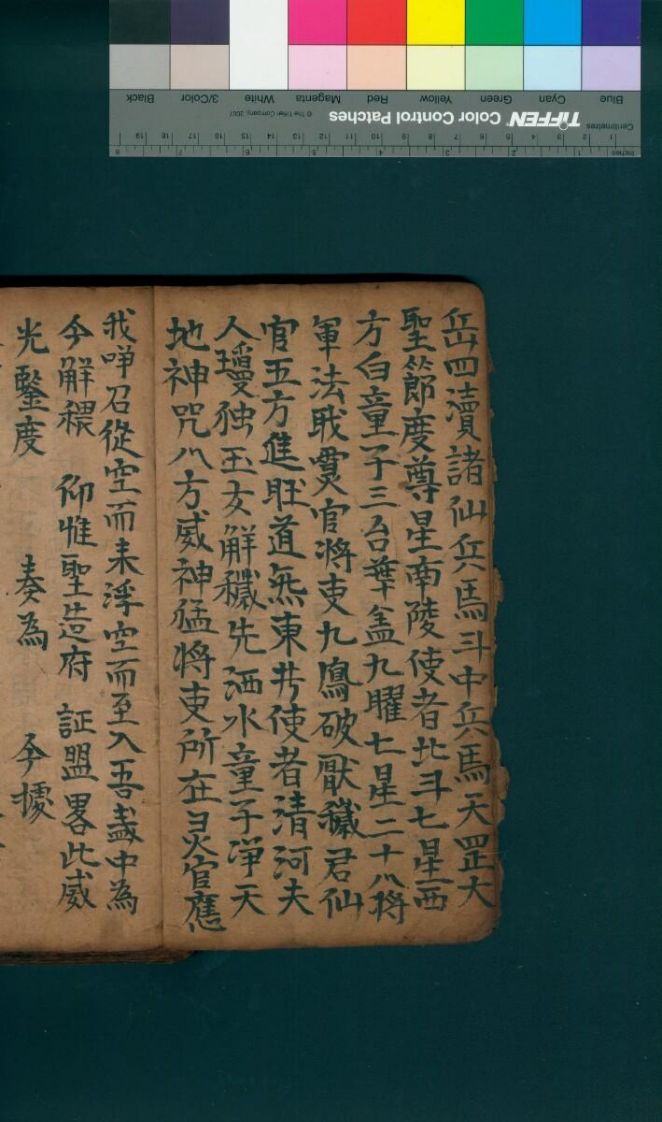 岳四瀆諸仙兵馬斗中兵馬天罡大
聖節度尊星南陵使者北斗七星西
方白童子三台華盖九曜七星二十八將
軍法戢霣官將吏九鳳破厭穢君仙
官五方進旺道炁東井使者清河夫
人瓊獨玉女解穢先洒水童子淨天
地神咒八方威神猛將吏所在灵官應
我呼召從空而来浮空而至入吾盏中為
今解穢 仰惟聖造府 証盟畧此威
光鑒度 奏為 今據
Blue Cyan Green Yellow Red Magenta White 3/Color Black
TIFFEN Color Control Patches © The Tiffen Company, 2007
Centimetres 1 2 3 4 5 6 7 8 9 10 11 12 13 14 15 16 17 18 19
Inches 1 2 3 4 5 6 7 8